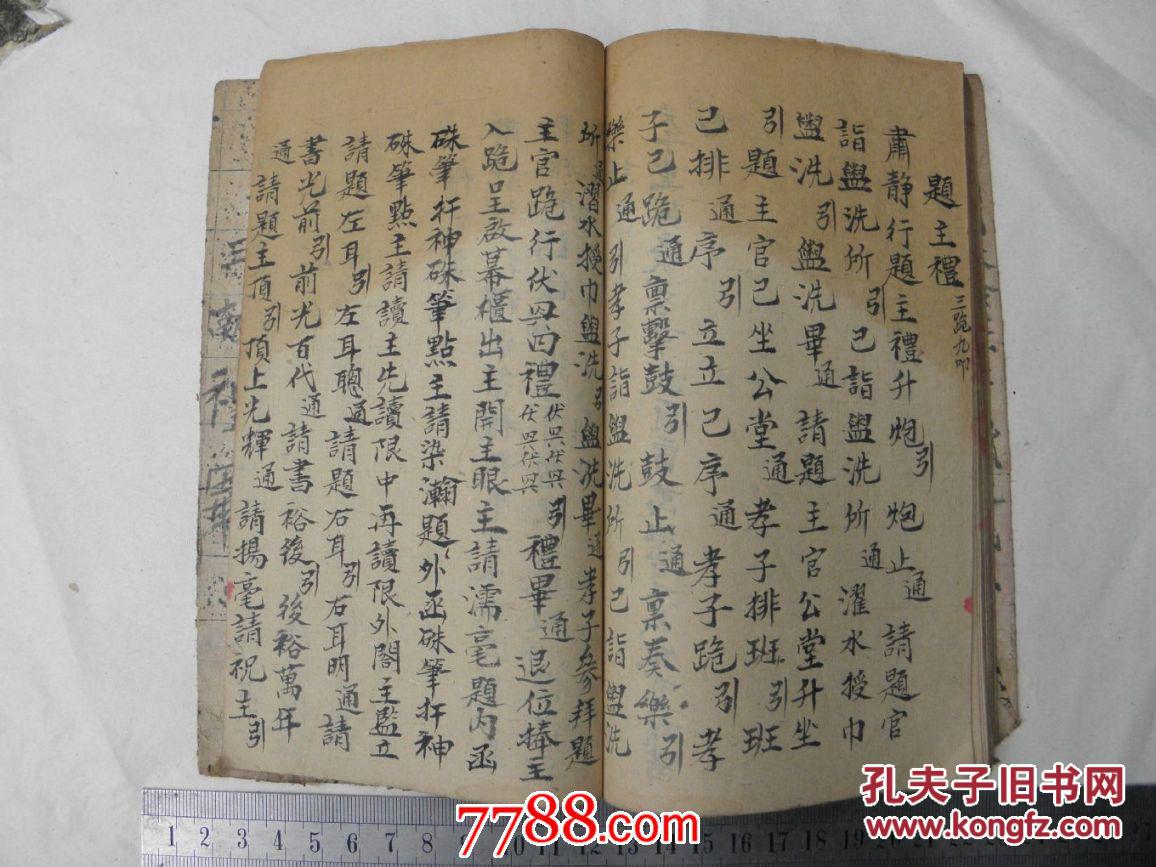 題主禮 三跪九叩
肅静行題主禮升炮引炮止通請題官
詣盥洗所引已詣盥洗所通濯水授巾
盥洗引盥洗畢通請題主官公堂升坐
引題主官已坐公堂通孝子排班引班
已排通序引立立已序通孝子跪引孝
子已跪通禀擊鼓引鼓止通禀奏樂引
樂止通引孝子詣盥洗所引已詣盥洗
所通濯水授巾盥洗引盥洗畢通孝子參拜題
主官跪行伏興四禮伏興伏興伏興伏興引禮畢通退位捧主
入跪呈啟幕櫃出主開主眼主請濡毫題内函
硃筆扞神硃筆點主請染瀚題外函硃筆扞神
硃筆點主請讀主先讀限中再讀限外閤主監立
請題左耳引左耳聰通請題右耳引右耳明通請
書光前引前光百代通請書裕後引後裕萬年
通請題主頂引頂上光輝通請揚毫請祝主引
1 2 3 4 5 6 7 8 9 10 11 12 13 14 15 16 17 18 19 20
7788.com
孔夫子旧书网
www.kongfz.com